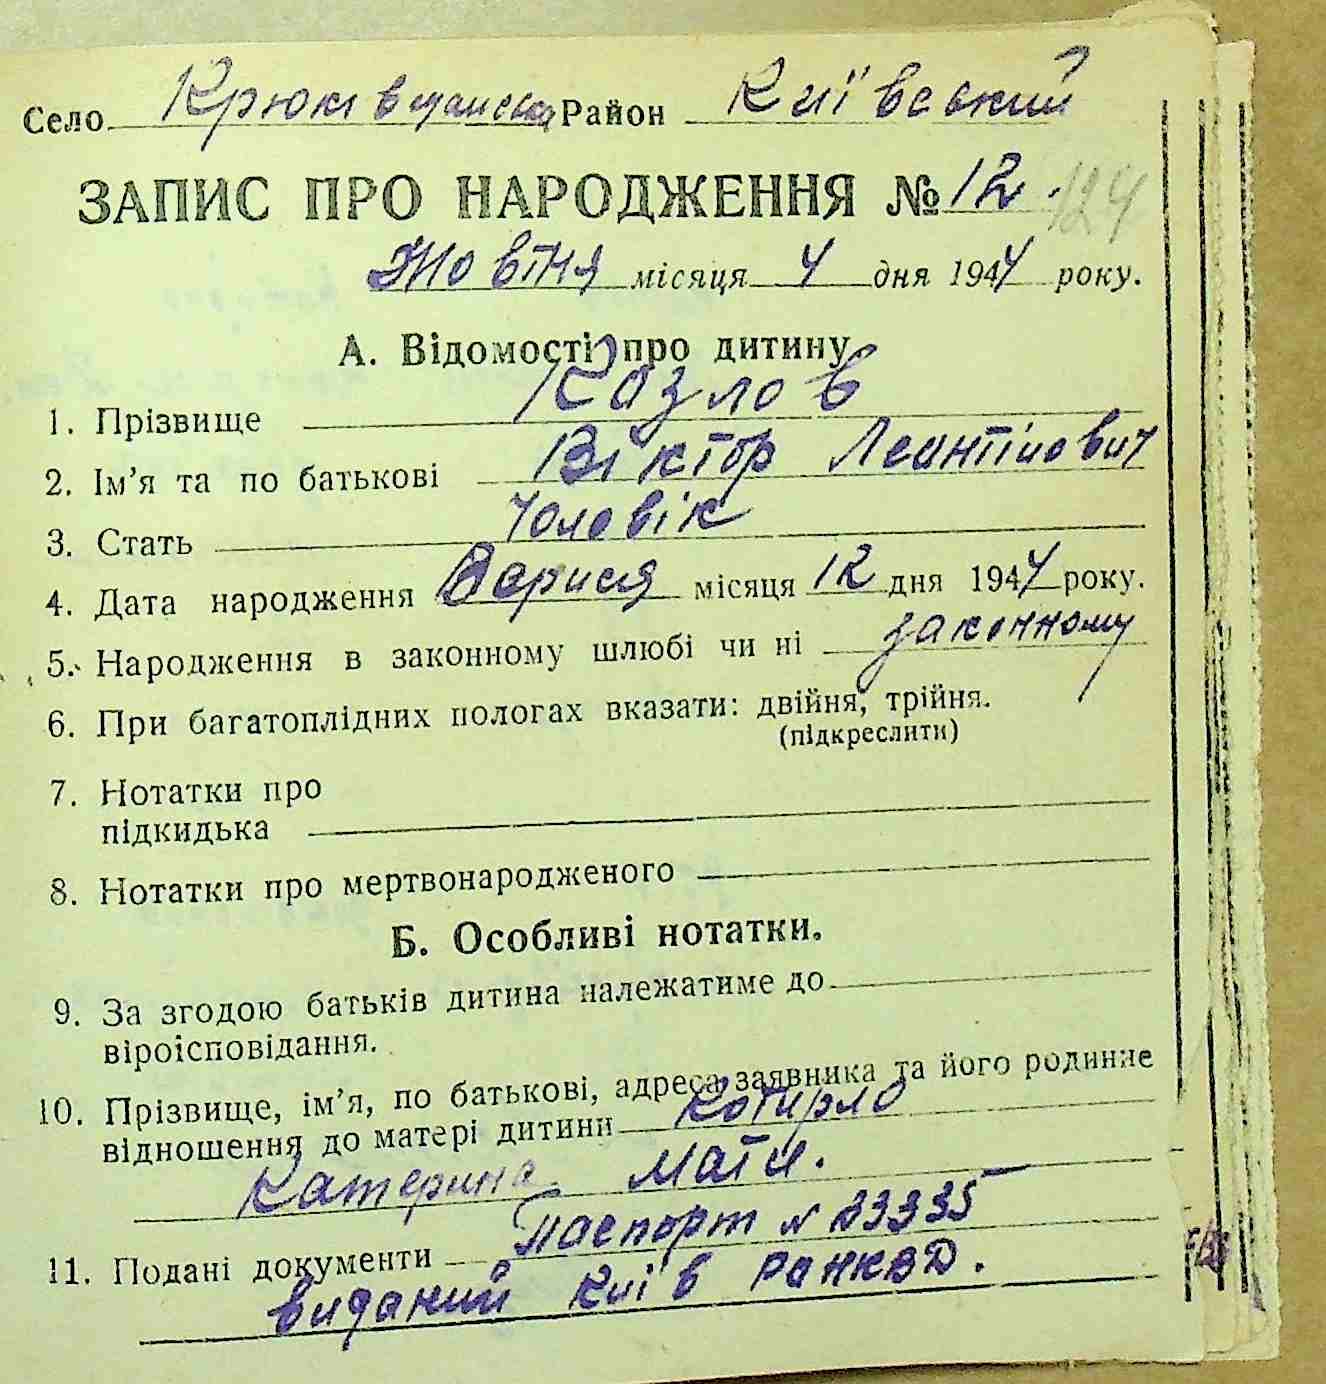 Село Крюківщинська Район Київський
ЗАПИС ПРО НАРОДЖЕННЯ № 12. 124
Жовтня місяця 4 дня 1944 року.
А. Відомості про дитину
1. Прізвище Казлов
2. Ім'я та по батькові Віктор Леантійович
3. Стать Чоловік
4. Дата народження Верисня місяця 12 дня 1944 року.
5. Народження в законному шлюбі чи ні законному
6. При багатоплідних пологах вказати: двійня, трійня.
(підкреслити)
7. Нотатки про
підкидька
8. Нотатки про мертвонародженого
Б. Особливі нотатки.
9. За згодою батьків дитина належатиме до
віроісповідання.
10. Прізвище, ім'я, по батькові, адреса заявника та його родинне
відношення до матері дитини Котирло
Катерина Мати.
11. Подані документи Паспорт N 33335
виданий Київ РАНКВД.